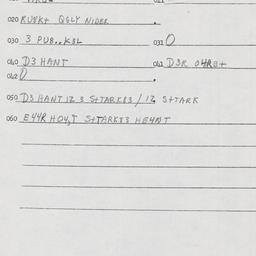 020 RUEK+ QGLY NIDER
030 3 PUB..KBL 031 0
040 D3 HANT 041 D3R 04RB+
042 0
050 D3 HANT IZ 3 S+TARK83 / IZ S+TARK
060 E44R HO4,T S+TARK83 HE4NT